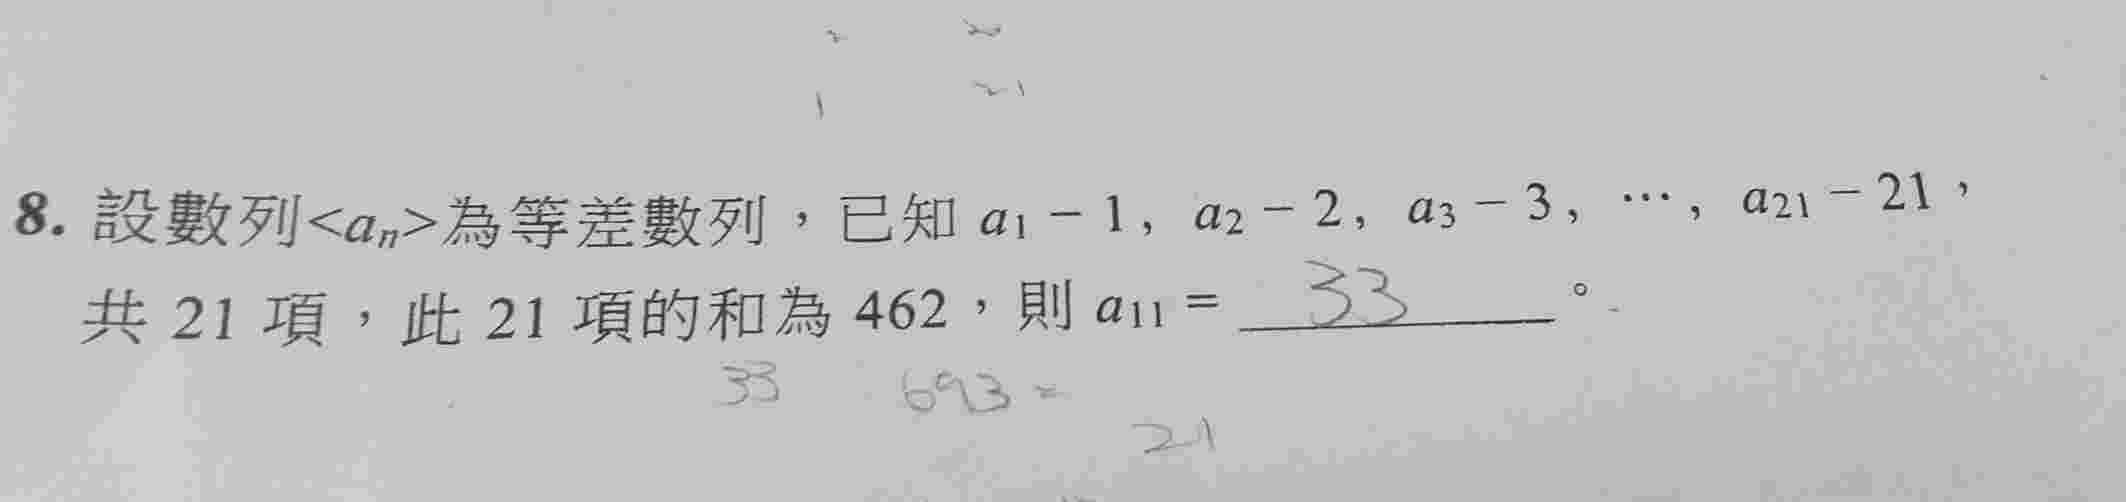 2 20
1 21
8. 設數列<aₙ>為等差數列，已知 a₁ − 1, a₂ − 2, a₃ − 3, …, a₂₁ − 21，
共 21 項，此 21 項的和為 462，則 a₁₁ = 33 。
33 693 =
21